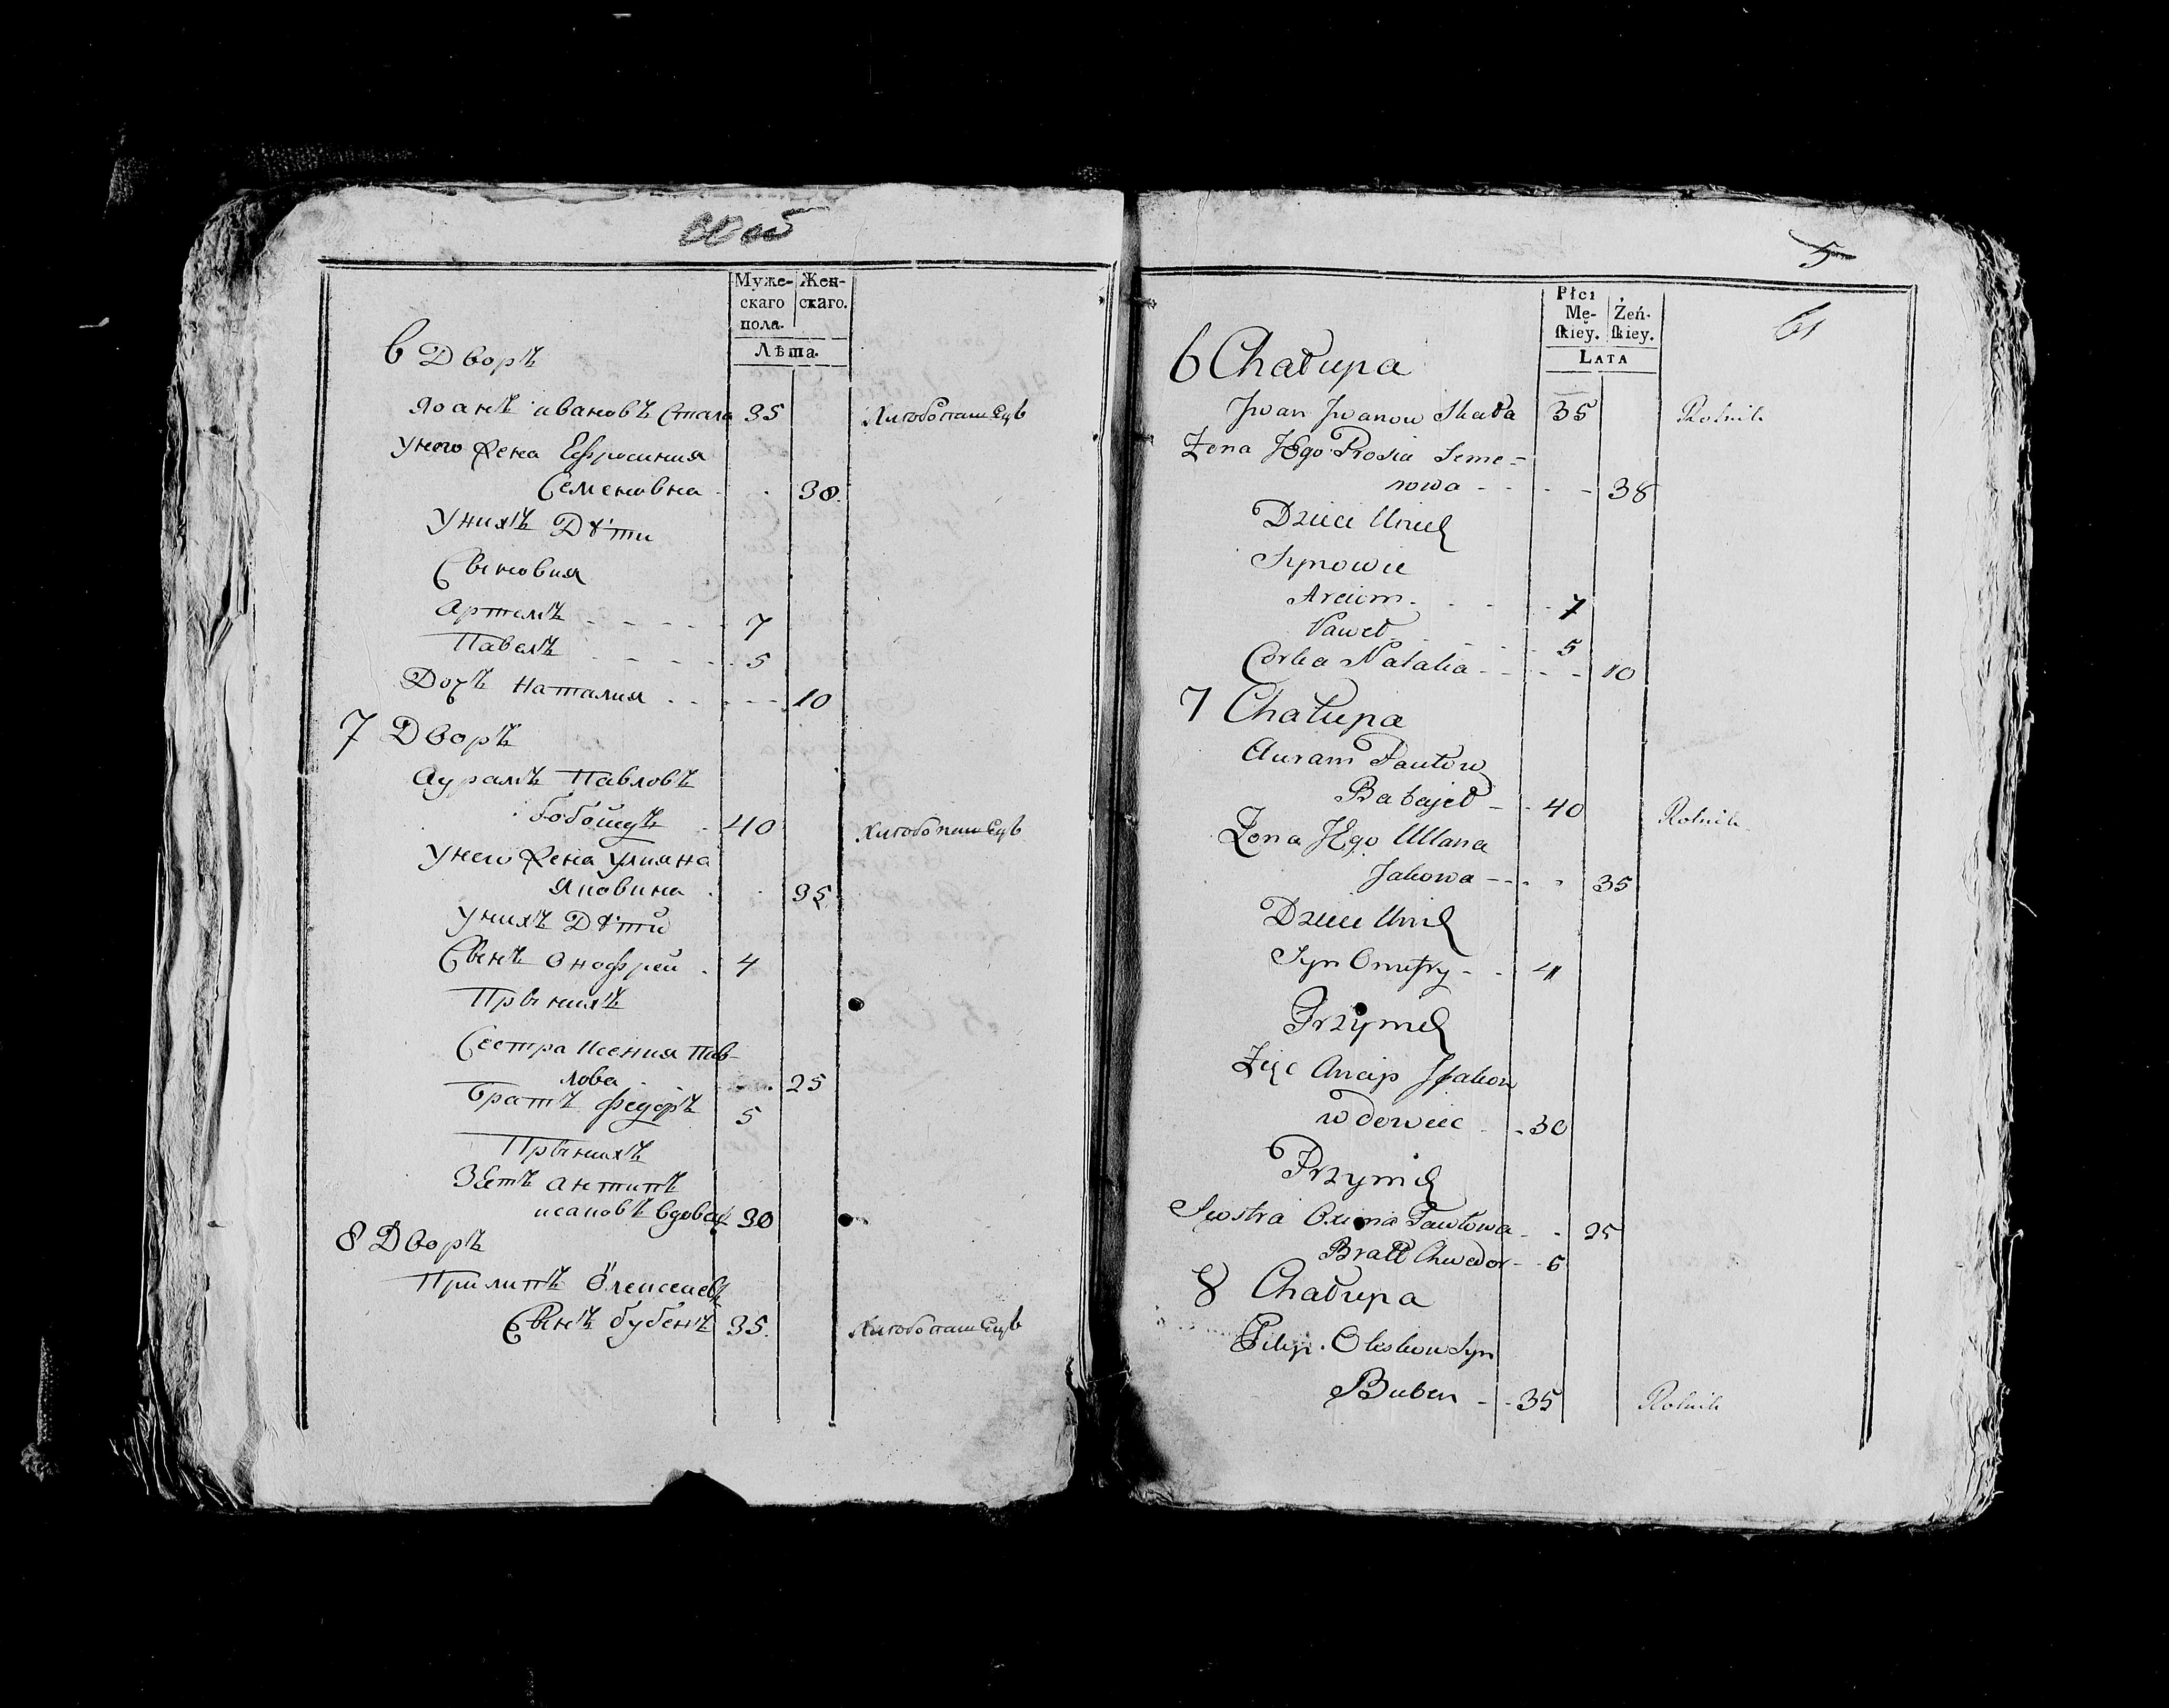 Муже-
скаго
пола.
Жен-
скаго.
Лѣта.
6 Дворъ
Яоанъ ивановъ Скала 35 Хлѣбопашецъ
Унего жена Ефросиния
Семеновна 38
Унихъ Дѣти
Сыновия
артемъ 7
Павелъ 5
Дочъ Наталия 10
7 Дворъ
аурамъ Павловъ
40 Хлѣбопашецъ
Унего жена Улияна
Яковина 35
унихъ Дѣти
Сынъ Онофрей 4
Прынихъ
Сестра Ксения Пав-
лова 25
братъ федоръ 5
Прынихъ
Зеть антипъ
исаковъ вдовец 30
8 Дворъ
Прилипъ Олексеевъ
Сынъ бубенъ 35 Хлѣбопашецъ
5
61
Płci
Mę-
skiey.
Żeń-
skiey.
LATA
6 Chałupa
Jwan Jwanow Skała 35 Rolnik
Żona Jego Prosia Seme-
nowa 38
Dzieci Unich
Synowie
Arciom 7
Paweł 5
Corka Natalia 10
7 Chałupa
Auram Pawłow
40 Rolnik
Żona Jego Ullana
Jakowa 35
Dzieci Unich
Syn Onufry 4
Przymch
Zięć Ancip
wdowiec 30
Przynich
Siostra Oxinia Pawłowa 25
Bratt Chwedor 5
8 Chałupa
Filip Oleskow Syn
Buben 35 Rolnik